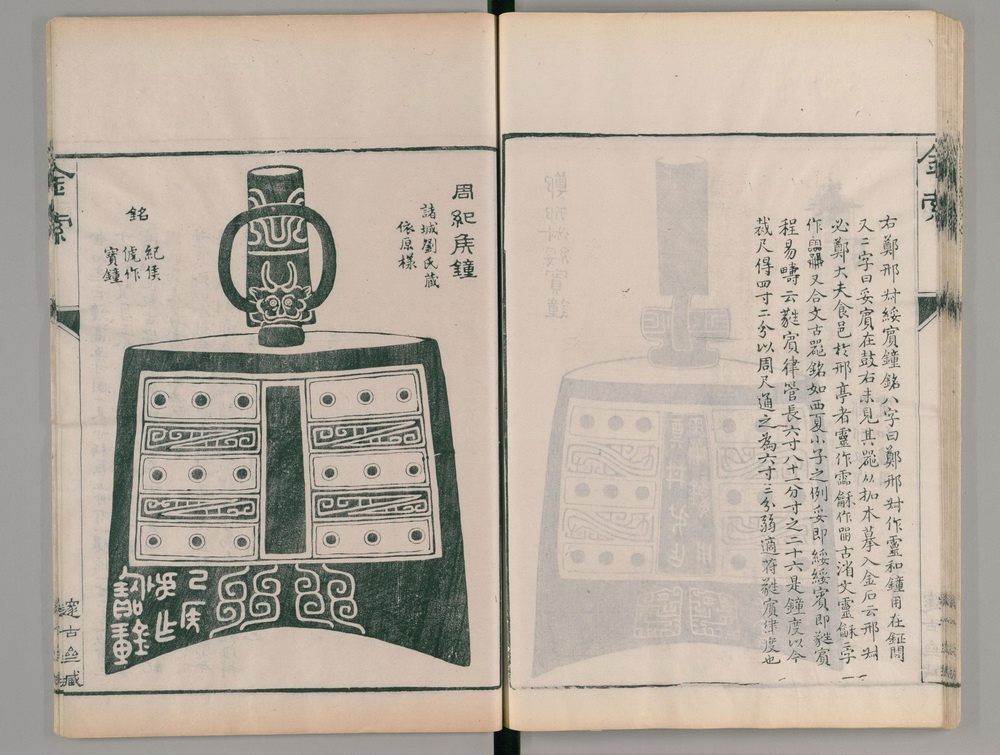 金索
右鄭邢叔綏賓鐘銘八字曰鄭邢叔作靈和鐘用在鉦間
又二字曰妥賓在鼓右未見其器从拓本摹入金石云邢叔
必鄭大夫食邑於邢亭者靈作霝龢作龠古渻文靈龢二字
作又合文古器銘如西夏小子之例妥即綏綏賓即蕤賓
程易疇云蕤賓律管長六寸八十一分寸之二十六是鐘度以今
裁尺得四寸二分以周尺通之為六寸三分弱適符蕤賓律度也
周紀矦鐘
諸城劉氏藏
依原樣
銘
紀矦
虎作
寶鐘
己矦
作
寶鐘
金索
邃古亝藏